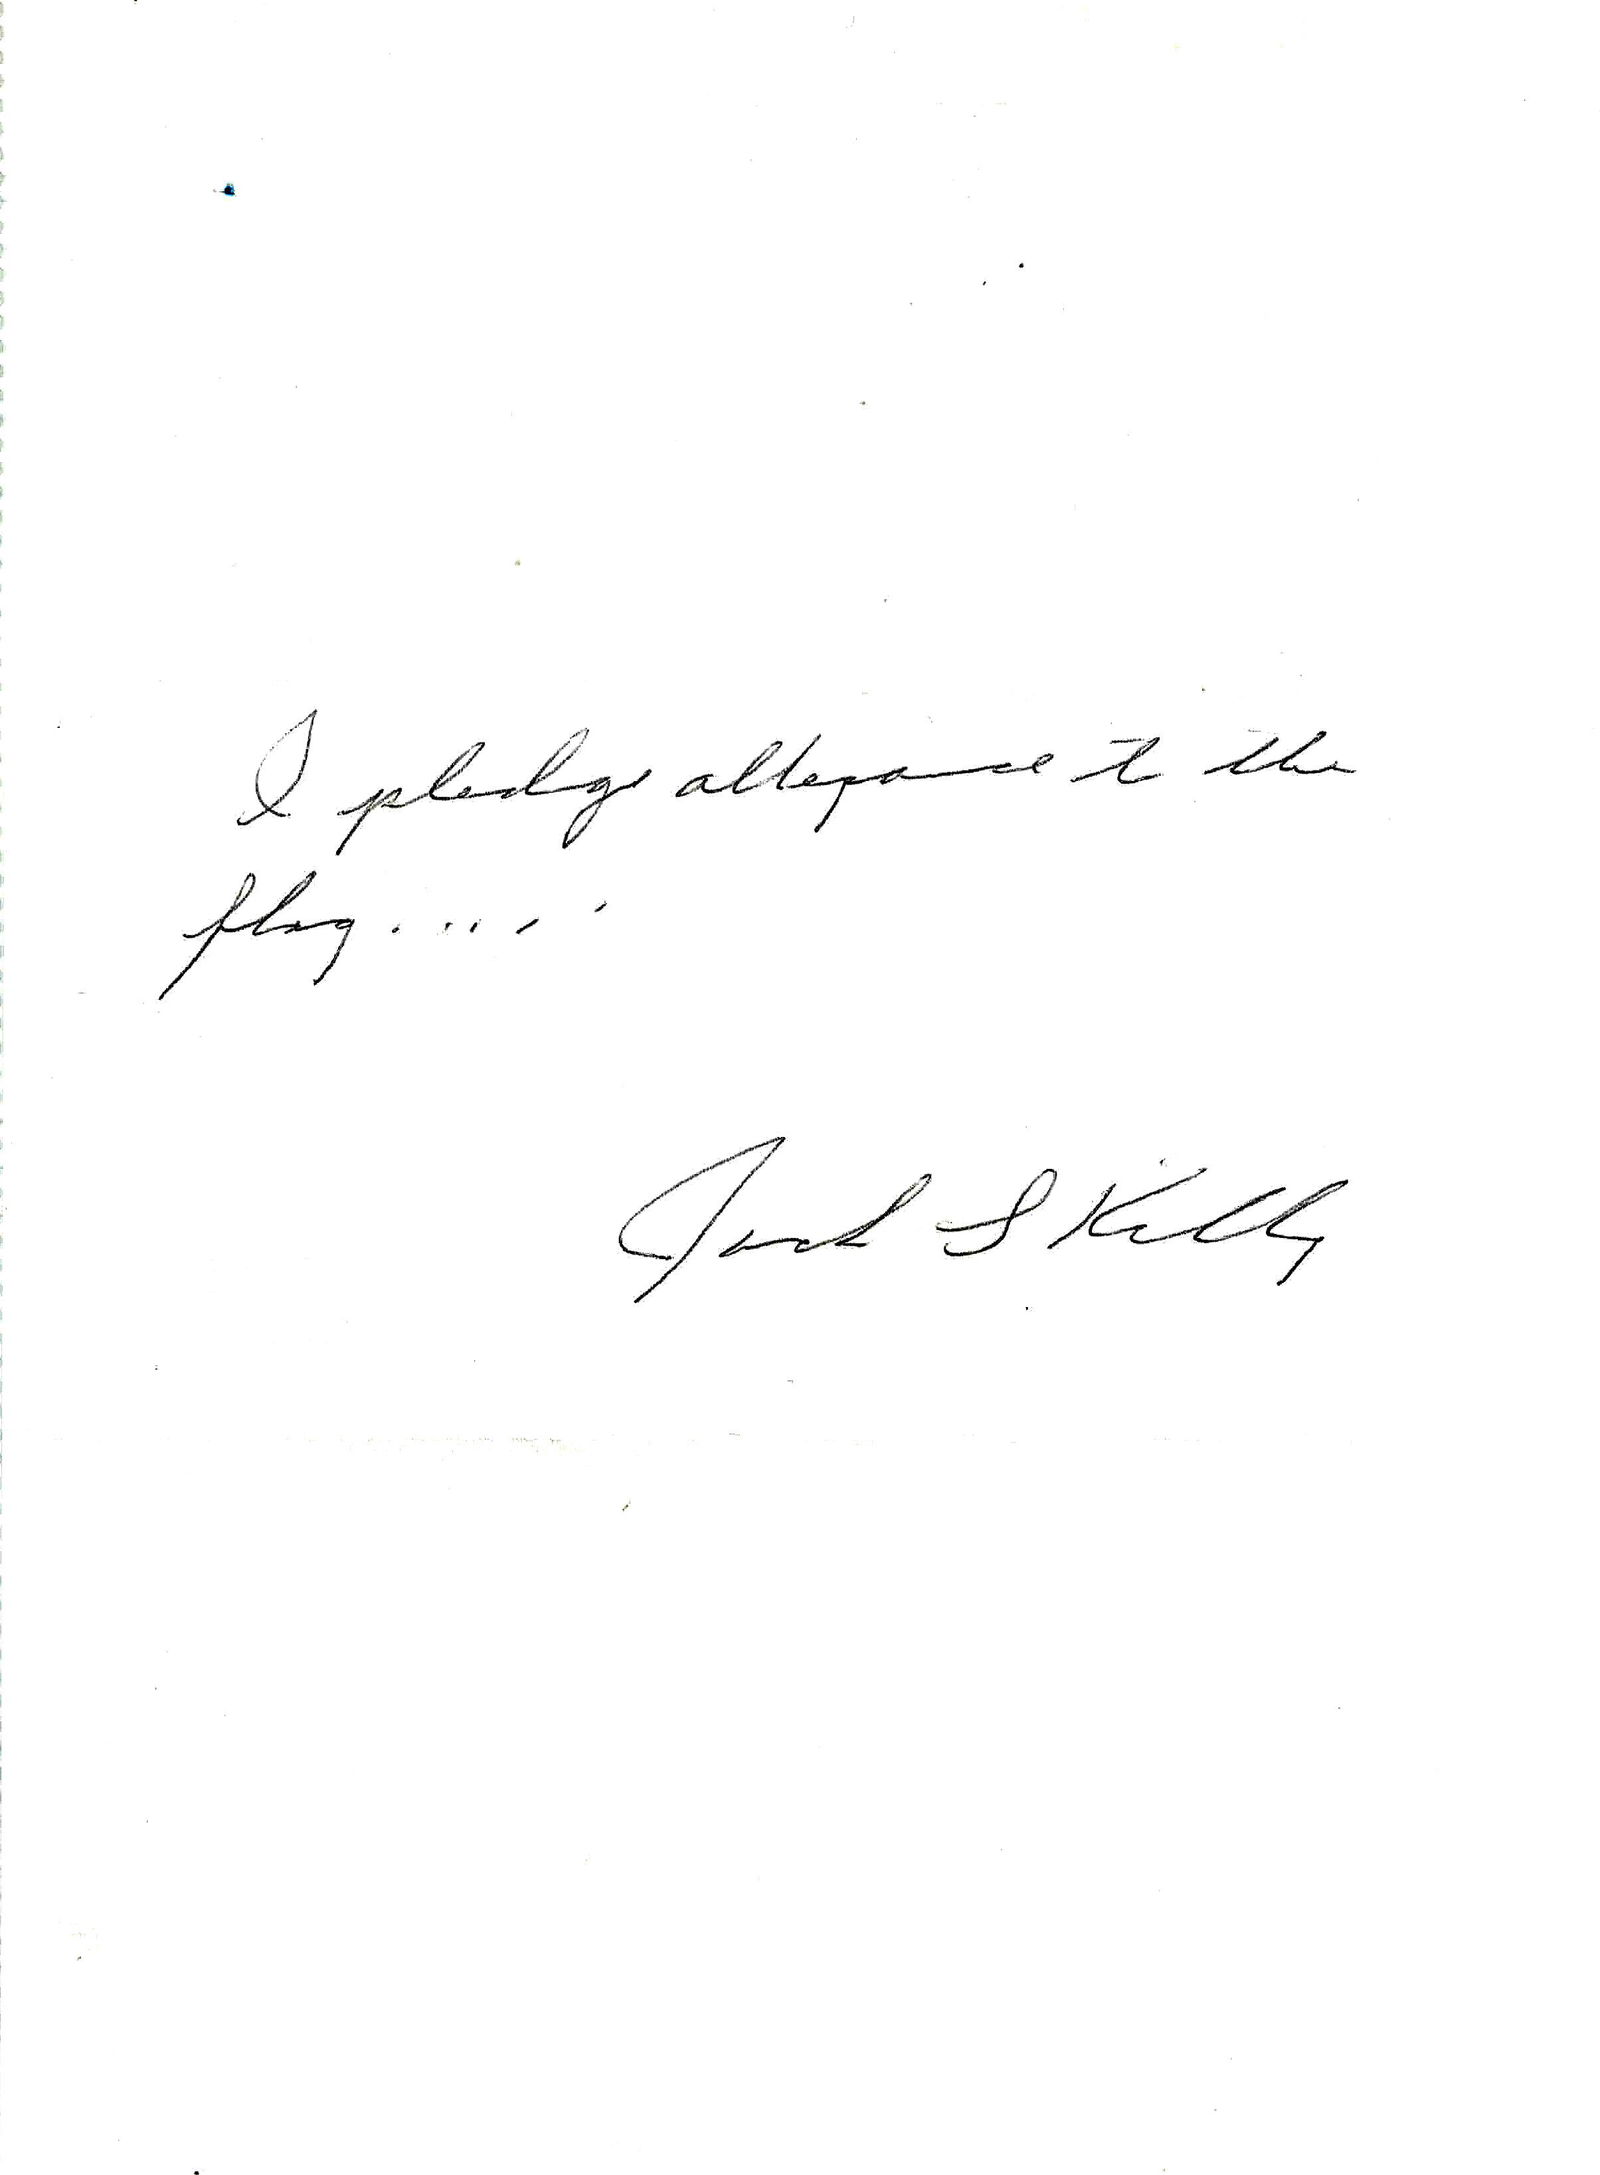 I pledge allegiance to the
flag......
Jack S Kilby